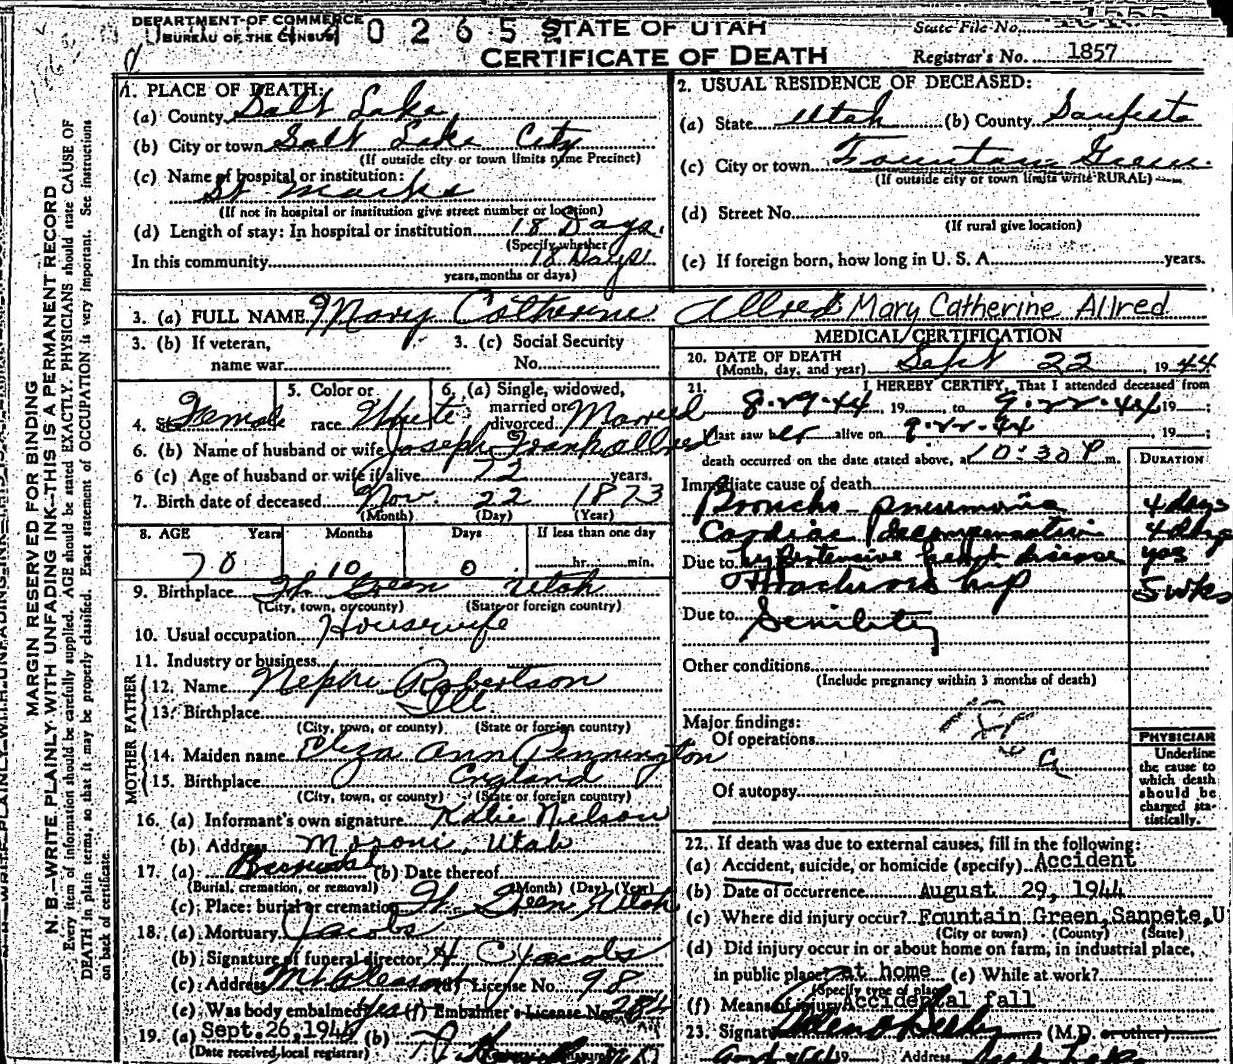 DEPARTMENT OF COMMERCE
BUREAU OF THE CENSUS
0 2 6 5
STATE OF UTAH
CERTIFICATE OF DEATH
State File No.
Registrar's No. 1857
MARGIN RESERVED FOR BINDING
N. B.—WRITE PLAINLY WITH UNFADING INK—THIS IS A PERMANENT RECORD
Every item of information should be carefully supplied. AGE should be stated EXACTLY. PHYSICIANS should state CAUSE OF
DEATH in plain terms, so that it may be properly classified. Exact statement of OCCUPATION is very important. See instructions
on back of certificate.
1. PLACE OF DEATH:
(a) County Salt Lake
(b) City or town Salt Lake City
(If outside city or town limits name Precinct)
(c) Name of hospital or institution:
St Marks
(If not in hospital or institution give street number or location)
(d) Length of stay: In hospital or institution 18 Days.
(Specify whether
In this community 18 Days
years, months or days)
2. USUAL RESIDENCE OF DECEASED:
(a) State Utah (b) County Sanpete
(c) City or town Fountain Green
(If outside city or town limits write RURAL)
(d) Street No.
(If rural give location)
(e) If foreign born, how long in U. S. A. years.
3. (a) FULL NAME Mary Catherine Allred Mary Catherine Allred
3. (b) If veteran,
name war
3. (c) Social Security
No.
4. Sex Female
5. Color or
race White
6. (a) Single, widowed,
married or
divorced Married
6. (b) Name of husband or wife Joseph Frank Allred
6 (c) Age of husband or wife if alive 72 years.
7. Birth date of deceased Nov. 22 1873
(Month) (Day) (Year)
8. AGE Years Months Days If less than one day
70 10 0 hr. min.
9. Birthplace Ft. Green Utah
(City, town, or county) (State or foreign country)
10. Usual occupation Housewife
11. Industry or business
FATHER
12. Name Nephi Robertson
13. Birthplace Ill.
(City, town, or county) (State or foreign country)
MOTHER
14. Maiden name Eliza Ann Pennington
15. Birthplace England
(City, town, or county) (State or foreign country)
16. (a) Informant's own signature Nielson
(b) Address Moroni, Utah
17. (a) Burial (b) Date thereof
(Burial, cremation, or removal) (Month) (Day) (Year)
(c) Place: burial or cremation Ft. Green Utah
18. (a) Mortuary Jacobs
(b) Signature of funeral director H C Jacobs
(c) Address Mt Pleasant (d) License No. 98
(e) Was body embalmed Yes (f) Embalmer's License No. 284
19. (a) Sept. 26, 1944 (b)
(Date received local registrar)
MEDICAL CERTIFICATION
20. DATE OF DEATH
(Month, day, and year) Sept 22, 1944
21. I HEREBY CERTIFY, That I attended deceased from
8-29-44, 19 to 9-22-44, 19 ;
I last saw her alive on 9-22-44, 19 ;
death occurred on the date stated above, at 10:30 P m.
DURATION
Immediate cause of death
Broncho-pneumonia 4 days
Cardiac decompensation 4 days
Due to hypertensive heart disease yrs
Fractured hip 5 wks
Due to Senility
Other conditions
(Include pregnancy within 3 months of death)
Major findings:
Of operations
Of autopsy
PHYSICIAN
Underline
the cause to
which death
should be
charged sta-
tistically.
22. If death was due to external causes, fill in the following:
(a) Accident, suicide, or homicide (specify) Accident
(b) Date of occurrence August 29, 1944
(c) Where did injury occur? Fountain Green, Sanpete, U
(City or town) (County) (State)
(d) Did injury occur in or about home on farm, in industrial place,
in public place? at home (e) While at work?
(Specify type of place)
(f) Means of injury Accidental fall
23. Signature (M.D. or other)
Address